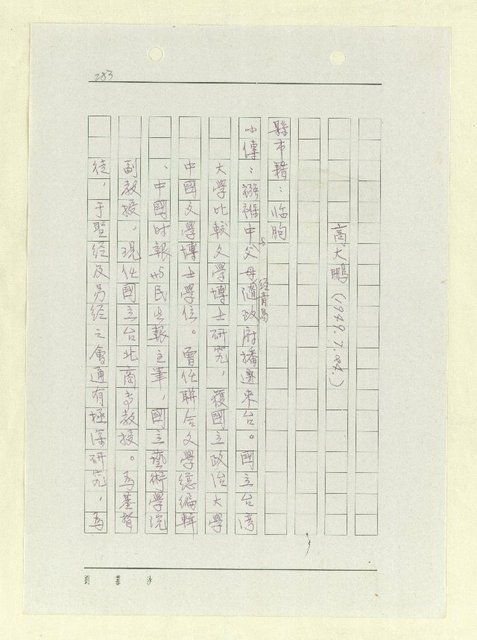 283
高大鵬（1949.7.24.）
縣市籍：临朐
小傳：襁褓中父母經青島隨政府播遷來台。國立台灣
大學比較文學博士研究，獲國立政治大學
中國文學博士學位。曾任聯合文學總編輯
、中國時報與民生報主筆，國立藝術學院
副教授，現任國立台北商專教授。為基督
徒，于聖經及易經之會通有極深研究，為